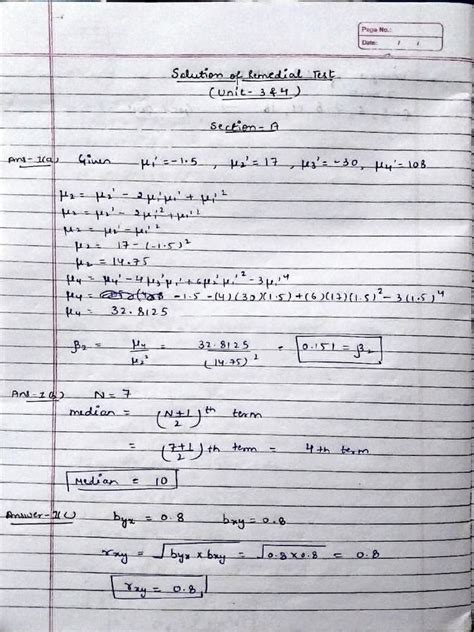 Page No.:
Date: / /
Solution of Remedial Test
(Unit - 3 & 4)
Section - A
Ans-1(a) Given μ₁' = -1.5, μ₂' = 17, μ₃' = -30, μ₄' - 108
μ₂ = μ₂' - 2μ₁'μ₁' + μ₁'²
μ₂ = μ₂' - 2μ₁'² + μ₁'²
μ₂ = μ₂' - μ₁'²
μ₂ = 17 - (-1.5)²
μ₂ = 14.75
μ₄ = μ₄' - 4μ₃'μ₁' + 6μ₂'μ₁'² - 3μ₁'⁴
μ₄ = -1.5 - (4)(30)(1.5) + (6)(17)(1.5)² - 3(1.5)⁴
μ₄ = 32.8125
β₂ = μ₄ / μ₂² = 32.8125 / (14.75)² = 0.151 = β₂
Ans-1(b) N = 7
median = ((N+1)/2)th term
= ((7+1)/2)th term = 4th term
Median = 10
Answer-1(c) byx = 0.8 bxy = 0.8
rxy = √(byx × bxy) = √(0.8 × 0.8) = 0.8
rxy = 0.8